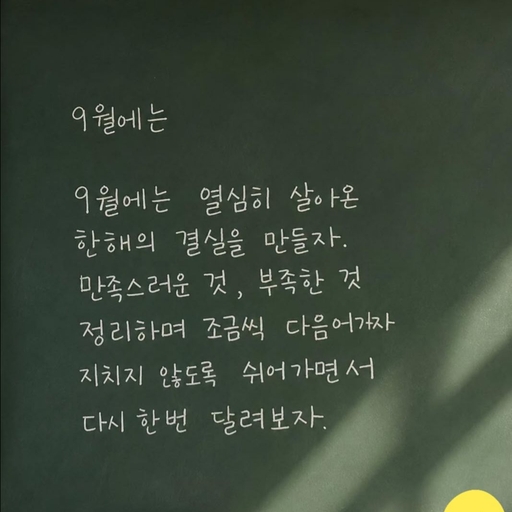 9월에는
9월에는 열심히 살아온
한해의 결실을 만들자.
만족스러운 것, 부족한 것
정리하며 조금씩 다음어가자
지치지 않도록 쉬어가면서
다시 한번 달려보자.